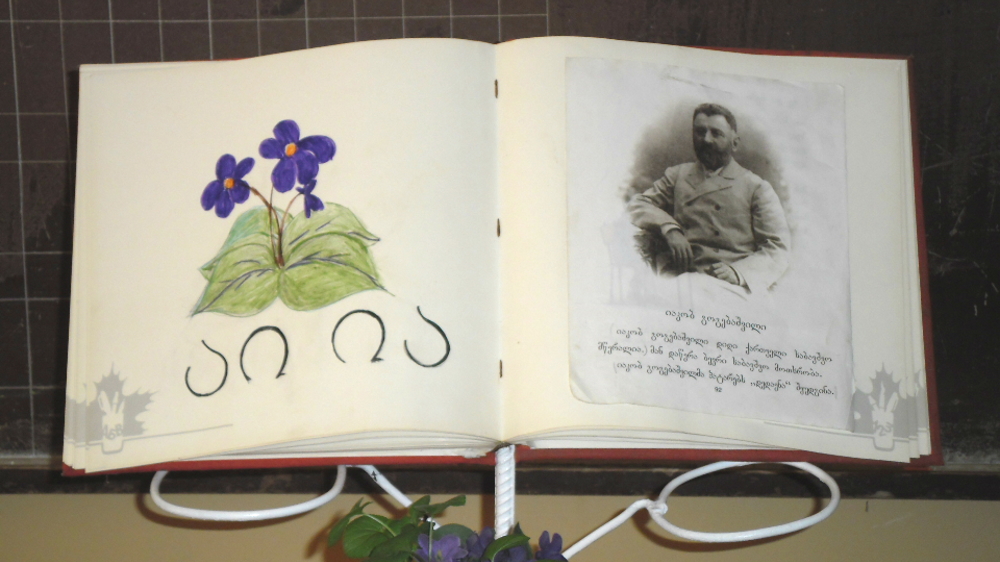 აი ია
იაკობ გოგებაშვილი
იაკობ გოგებაშვილი დიდი ქართველი საბავშვო
მწერალია. მან დაწერა ბევრი საბავშვო მოთხრობა.
იაკობ გოგებაშვილმა პატარებს „დედაენა“ შეუდგინა.
92